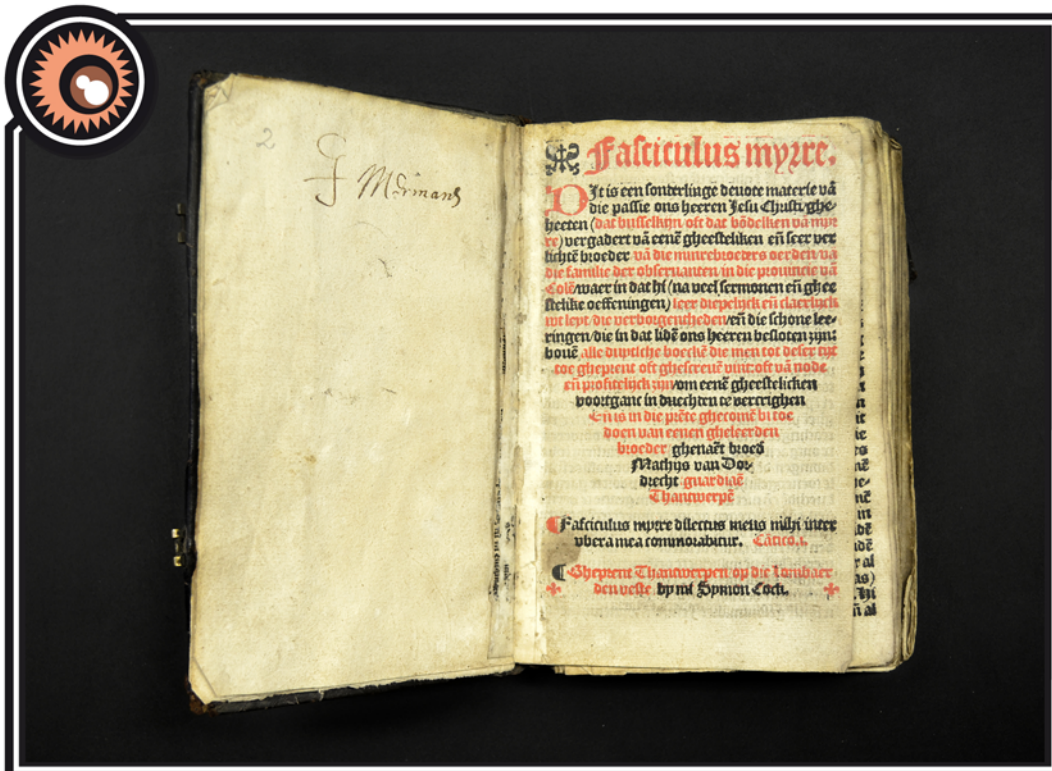 2
F Mermans
Fasciculus myrre.
DJt is een sonderlinge deuote materie vā
die passie ons heeren Jesu Christi/ghe-
heeten (dat busselkyn/oft dat bōdelken vā myr
re) vergadert vā eenē gheesteliken eñ seer ver
lichtē broeder vā die minrebroeders oerden/vā
die familie der obseruanten/in die prouincie vā
Colē/waer in dat hi (na veel sermonen eñ ghee
stelike oeffeningen) seer diepelijck eñ claerlijck
wt leyt/die verborgentheden/eñ die schone lee-
ringen/die in dat lidē ons heeren besloten zijn:
bouē alle duytsche boeckē die men tot deser tijt
toe gheprent oft ghescreuē vint: oft vā node
eñ profitelijck zijn/om eenē gheestelicken
voortganc in duechten te vercrighen
Eñ is in die prēte ghecomē bi toe
doen van eenen gheleerden
broeder ghenaēt broed
Mathijs van Dor-
drecht guardiaē
Thantwerpē
Fasciculus myrre dilectus meus mihi inter
vbera mea commorabitur. Cātico.i.
Gheprent Thantwerpen op die Lombaer
den veste by mi Symon Cock.